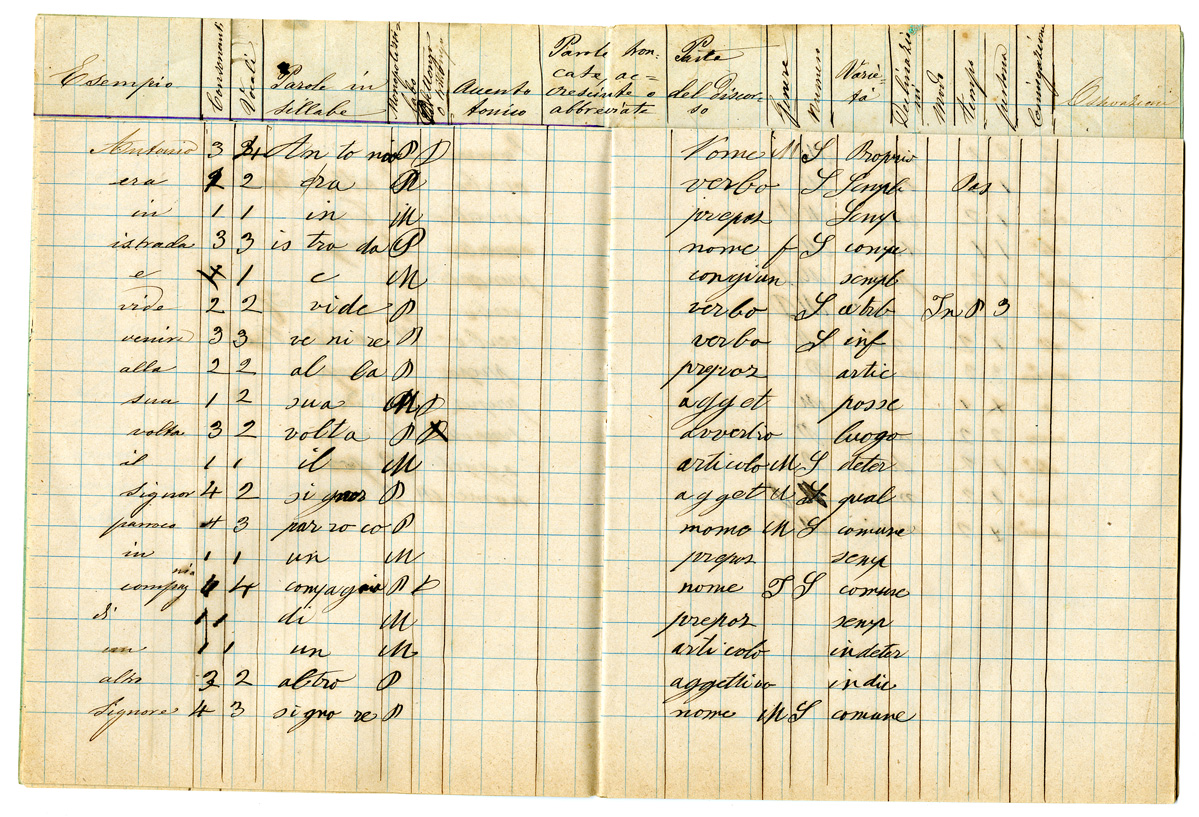 Esempio Consonanti Vocali Parole in sillabe Accento tonico Parole tron-cate, ac=cresciute o abbreviate Parte del Discor-so Genere Numero Varie-tà Declinazioni Modo Tempo persona Coniugazione Osservazioni
Antonio 3 4 An to nio P P Nome M S Proprio
era 1 2 era P verbo S Sempl Pas
in 1 1 in M prepos Semp
istrada 3 3 is tra da P nome f S comu
e 1 e M congiun sempl
vide 2 2 vide P verbo S attrb In P 3
venire 3 3 ve ni re P verbo S inf
alla 2 2 al la P prepos artic
sua 1 2 sua M P agget posse
volta 3 2 volta P avverbio luogo
il 1 1 il M articolo M S deter
Signor 4 2 signor P agget M qual
parroco 4 3 par ro co P nome M S comune
in 1 1 un M prepos semp
compagnia 4 4 compagnia P P nome F S comune
di 1 1 di M prepos semp
un 1 1 un M articolo indeter
altro 3 2 altro P aggettivo indic
Signore 4 3 signo re P nome M S comune